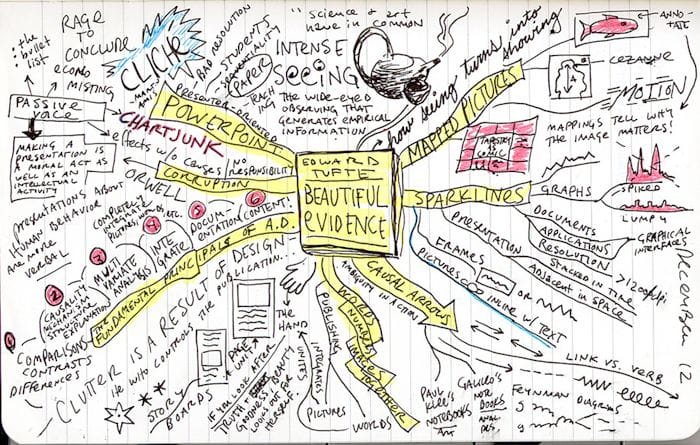 : the
bullet
list
RAGE
TO
CONCLUDE
ECONO
MISTING
PASSIVE
VOICE
MAKING A
PRESENTATION IS
A MORAL ACT AS
WELL AS AN
INTELLECTUAL
ACTIVITY
CLICHE
BAD RESOLUTION
STUDENTS
SEQUENTIALITY
PAPER
PRESENTER-ORIENTED
POWERPOINT
CHARTJUNK
effects w/o causes
NO
RESPONSIBILITY
CORRUPTION
ORWELL
"science & art
have in common
INTENSE
SEEING
THE WIDE-EYED
OBSERVING THAT
GENERATES EMPIRICAL
INFORMATION
how seeing turns into
showing
MAPPED PICTURES
ANNO-
TATE
CEZANNE
MOTION
MAPPINGS
THE IMAGE
TELL WHY
MATTERS!
TAPESTRY
COMIC
EDWARD
TUFTE
BEAUTIFUL
EVIDENCE
SPARKLINES
GRAPHS
SPIKED
LUMPY
DOCUMENTS
APPLICATIONS
GRAPHICAL
INTERFACES
PRESENTATION
RESOLUTION
STACKED IN TIME
Adjacent in SPACE
FRAMES
OR
PICTURES
INLINE w/ TEXT
December 12
presentations About
Human Behavior
are more
verbal
FUNDAMENTAL PRINCIPALS OF A.D.
1
COMPARISONS
CONTRASTS
DIFFERENCES
2
CAUSALITY
MECHANISM
STRUCTURE
EXPLANATION
3
MULTI
VARIATE
ANALYSIS
4
COMPLETELY
INTEGRATE
PICTURES, WORDS
ETC.
INTE
GRATE
5
DOCUM-
ENTATION
6
CONTENT!
CLUTTER IS A RESULT OF DESIGN
He WHO CONTROLS THE PUBLICATION...
STORY
BOARDS
PAGE
UNIT
EYES LOOK AFTER
TRUTH
GOODNESS BEAUTY
LOOKS OUT FOR
HERSELF.
THE
HAND
UNITES
PUBLISHING
INTEGRATES
PICTURES
WORDS
WORDS
NUMBERS
IMAGES
TOGETHER
CAUSAL ARROWS
AMBIGUITY IN ACTION
LINK vs. VERB
PAUL
KLEE'S
NOTEBOOKS
GALILEO'S
NOTE
BOOKS
FEYNMAN
DIAGRAMS